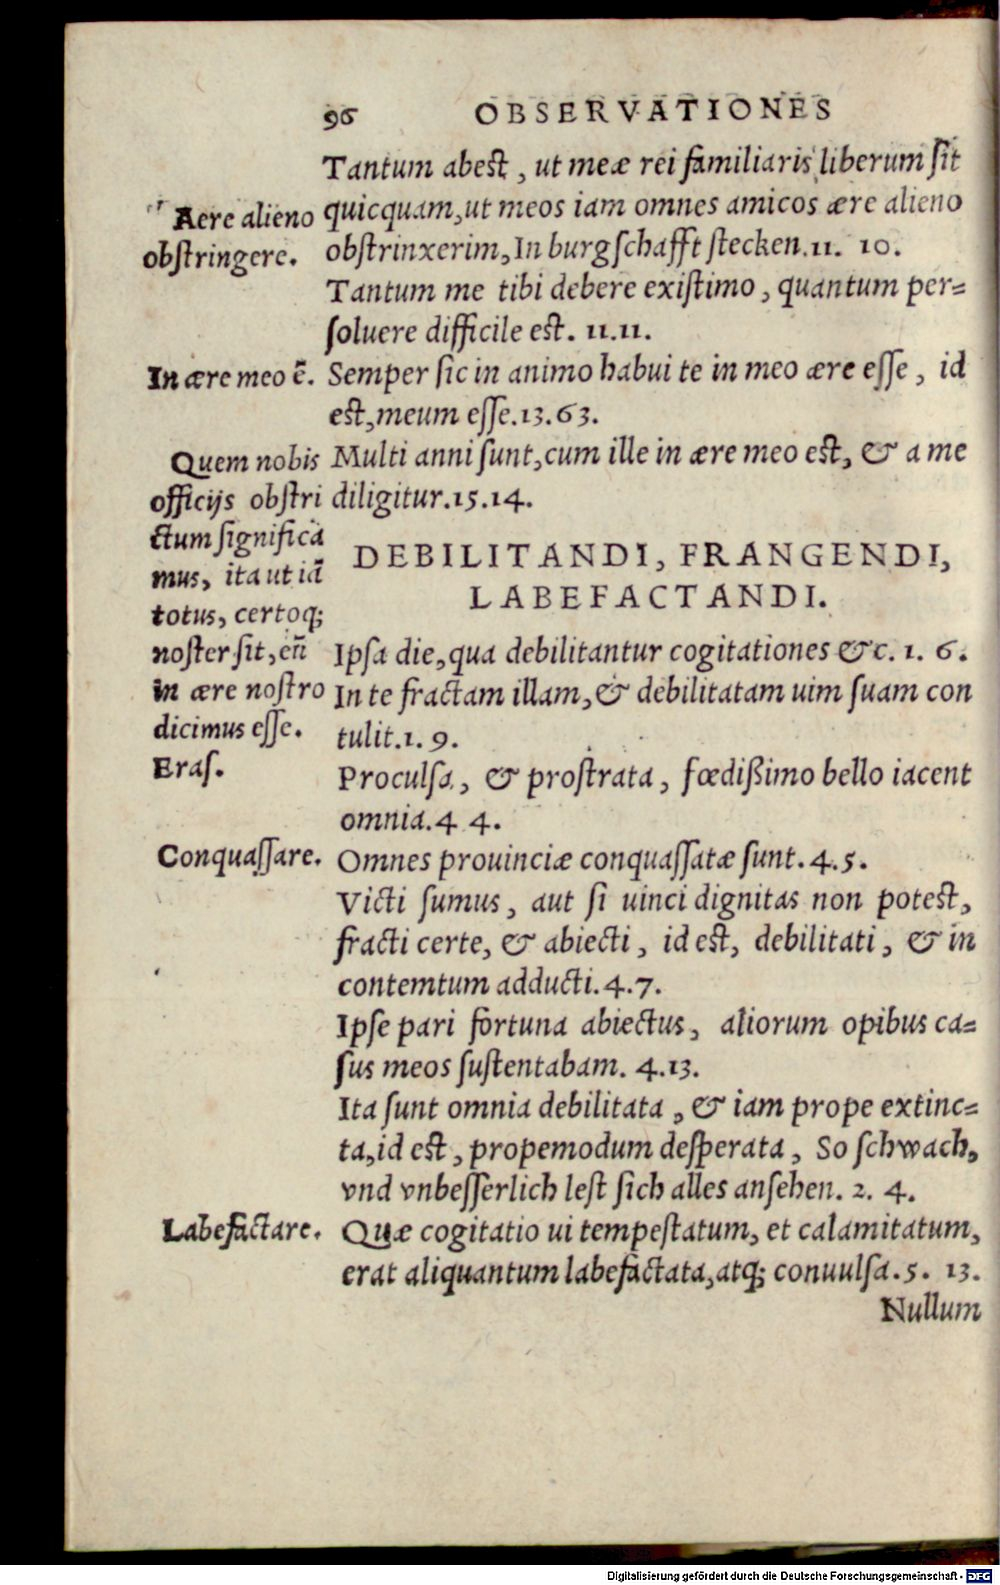 96 OBSERVATIONES
Tantum abest, ut meæ rei familiaris liberum sit
quicquam, ut meos iam omnes amicos ære alieno
obstrinxerim, In burgschafft stecken. 11. 10.
Tantum me tibi debere existimo, quantum per=
soluere difficile est. 11.11.
Semper sic in animo habui te in meo ære esse, id
est, meum esse. 13.63.
Multi anni sunt, cum ille in ære meo est, & a me
diligitur. 15.14.
Aere alieno
obstringere.
In ære meo ē.
Quem nobis
officijs obstri
ctum significa
mus, ita ut iā
totus, certoq;
noster sit, eū
in ære nostro
dicimus esse.
Eras.
DEBILITANDI, FRANGENDI,
LABEFACTANDI.
Ipsa die, qua debilitantur cogitationes &c. 1. 6.
In te fractam illam, & debilitatam uim suam con
tulit. 1. 9.
Proculsa, & prostrata, fœdißimo bello iacent
omnia. 4 4.
Conquassare.
Omnes prouinciæ conquassatæ sunt. 4.5.
Victi sumus, aut si uinci dignitas non potest,
fracti certe, & abiecti, id est, debilitati, & in
contemtum adducti. 4.7.
Ipse pari fortuna abiectus, aliorum opibus ca=
sus meos sustentabam. 4.13.
Ita sunt omnia debilitata, & iam prope extinc=
ta, id est, propemodum desperata, So schwach,
vnd vnbesserlich lest sich alles ansehen. 2. 4.
Labefactare.
Quæ cogitatio ui tempestatum, et calamitatum,
erat aliquantum labefactata, atq; conuulsa. 5. 13.
Nullum
Digitalisierung gefördert durch die Deutsche Forschungsgemeinschaft - DFG